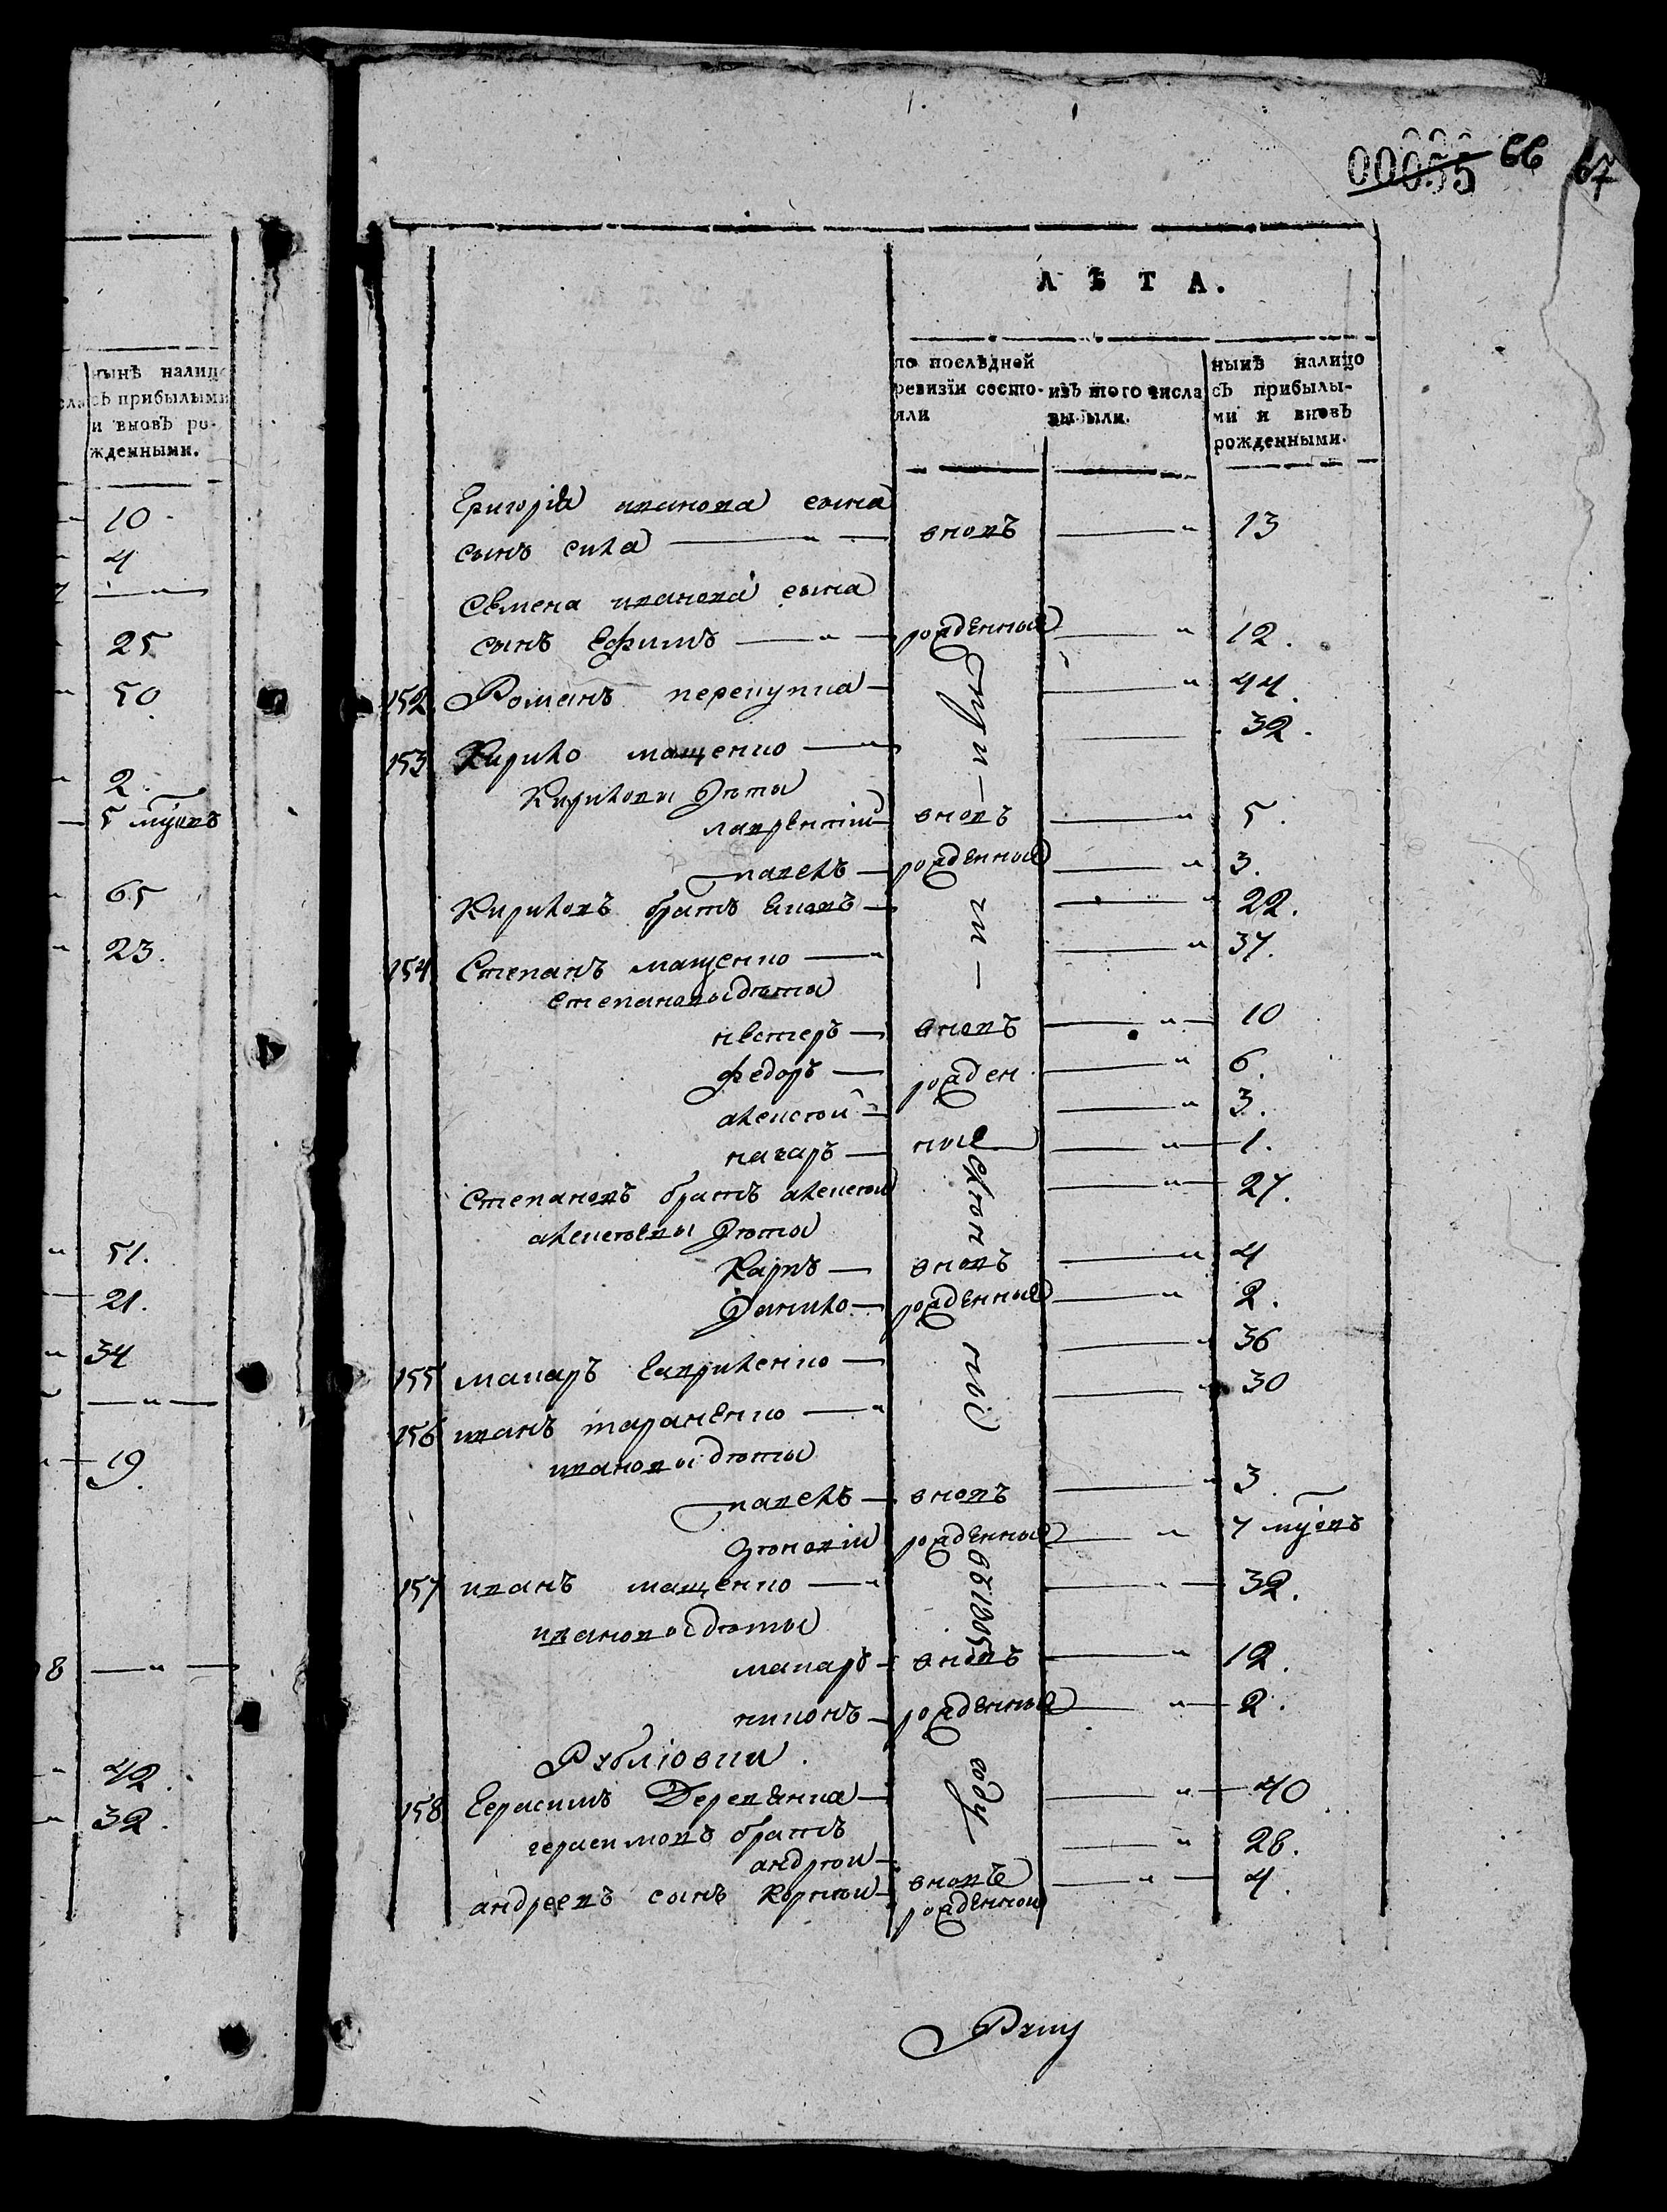 00055 66 67
ЛѢТА.
нынѣ налицо
съ прибылыми
и вновь ро-
жденными.
по послѣдней
ревизіи состо-
яли
изъ того числа
выбыли.
нынѣ налицо
съ прибылы-
ми и вновь
рожденными.
10
4
25
50
2.
5 мѣсяцъ
65
23.
51.
21.
34
19.
8
42.
32.
Григорія иванова сына
сынъ сила — вновь — 13
Семена иванова сына
сынъ ефимъ — рожденные — 12.
152 Романъ перекупка — 44.
153 Кирило мащенко — 32.
Кириловы дѣти
лаврентій — вновь — 5.
павелъ — рожденные — 3.
Кириловъ братъ — 22.
154 Степанъ мащенко — 37.
степановы дѣти
нестеръ — вновь — 10
федоръ — рожден — 6.
алексѣй — 3.
назаръ — ные — 1.
Степановъ братъ алексѣй — 27.
алексѣевы дѣти
Карпъ — вновь — 4
Данило — рожденные — 2.
155 макаръ гавриленко — 36
156 иванъ тараненко — 30
ивановы дѣти
павелъ — вновь — 3.
зѣновій рожденные — 7 мѣсяцъ
157 иванъ мащенко — 32.
ивановы дѣти
макаръ — вновь — 12.
никонъ — рожденные — 2.
Рублювки.
158 Герасимъ Деревянка — 40
герасимовъ братъ
андрѣй — 28.
андреевъ сынъ Корнѣй — вновь — 4.
рожденной